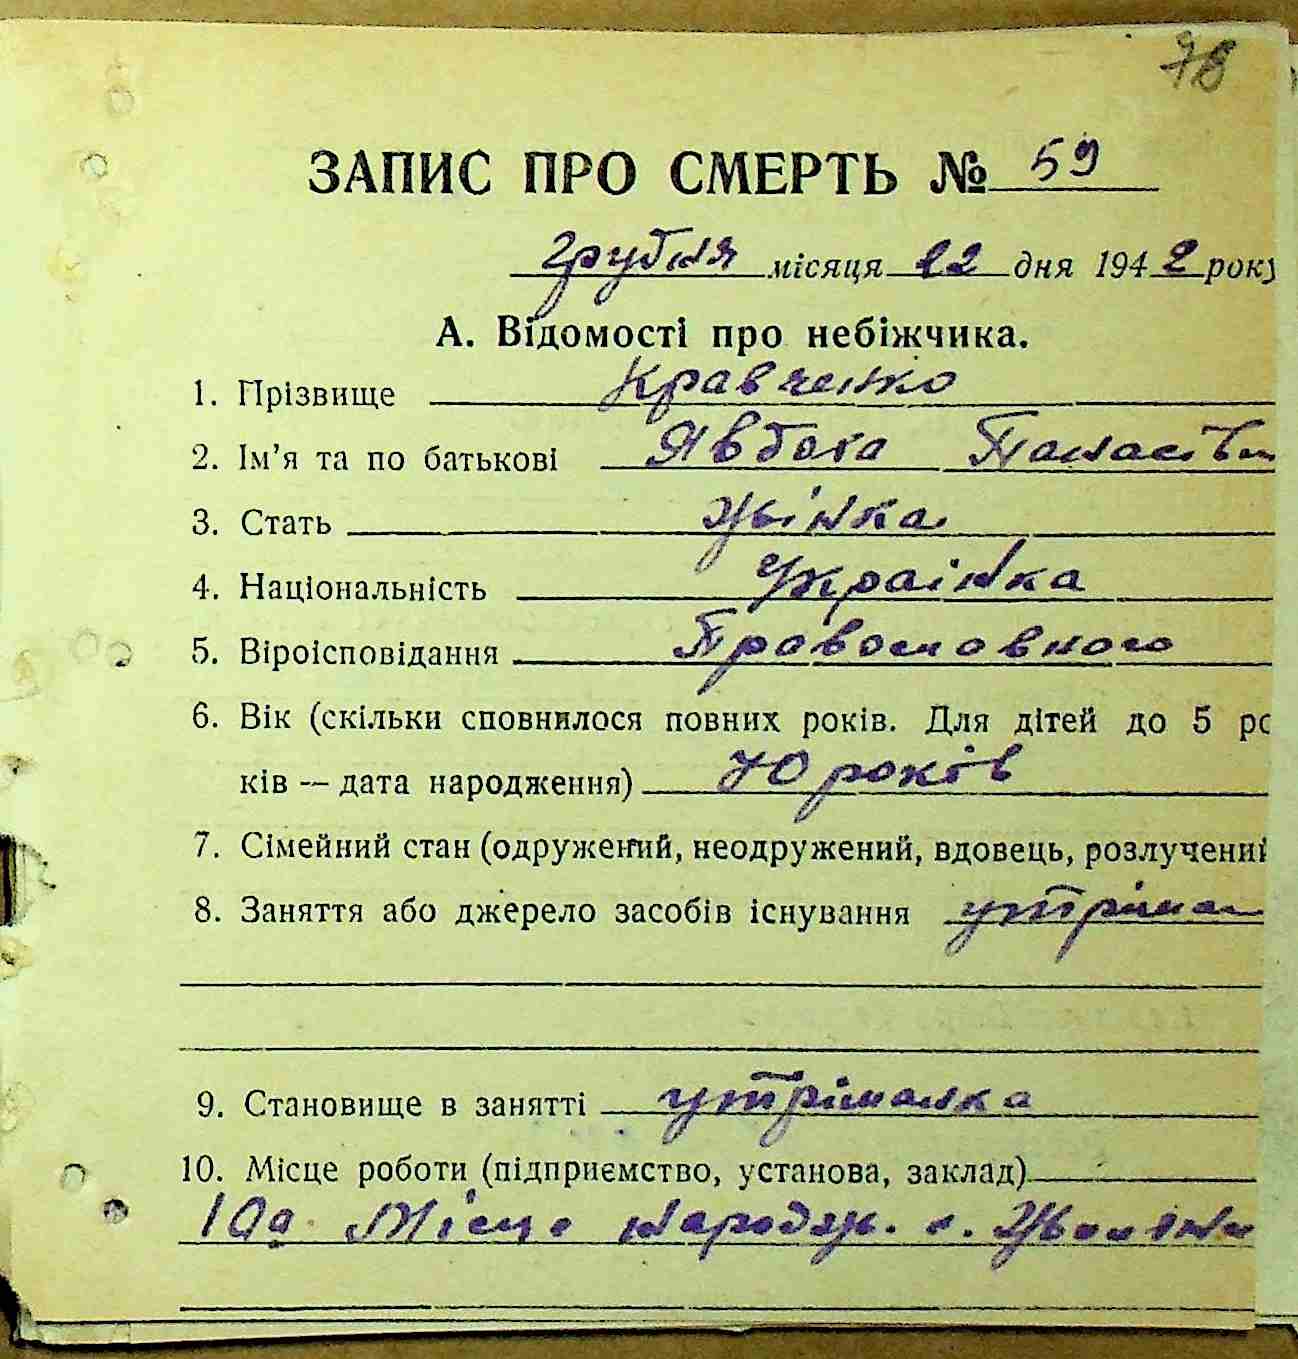 78
ЗАПИС ПРО СМЕРТЬ № 59
грудня місяця 12 дня 1942 року
А. Відомості про небіжчика.
1. Прізвище Кравченко
2. Ім’я та по батькові Явдоха Панасівн
3. Стать жінка
4. Національність Українка
5. Віроісповідання Православного
6. Вік (скільки сповнилося повних років. Для дітей до 5 ро
ків — дата народження) 70 років
7. Сімейний стан (одружений, неодружений, вдовець, розлучений
8. Заняття або джерело засобів існування утріман
9. Становище в занятті утріманка
10. Місце роботи (підприємство, установа, заклад)
10а Місце народж. с.